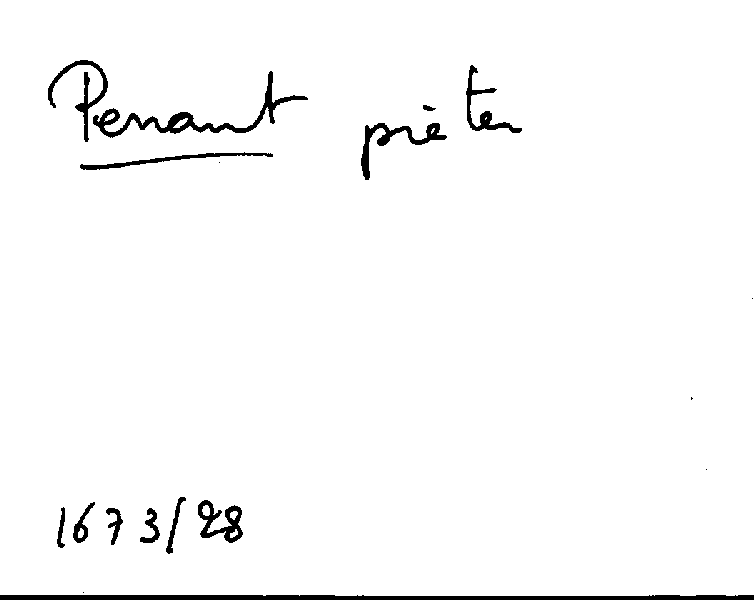 Penant pièter
1673/28